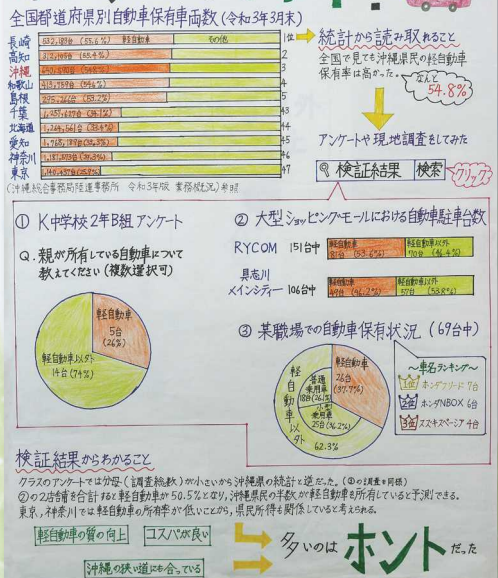 全国都道府県別自動車保有車両数(令和3年3月末)
長崎 532,183台 (55.6%) 軽自動車 その他 1位
高知 (55.4%) 2
沖縄 (54.8%) 3
和歌山 413,759台 (54%) 4
島根 295,261台 (53.2%) 5
千葉 43
北海道 44
愛知 45
神奈川 46
東京 47
(沖縄総合事務局陸運事務所 令和3年版 業務概況)参照
統計から読み取れること
全国で見ても沖縄県民の軽自動車
保有率は高かった。
なんと
54.8%
アンケートや現地調査をしてみた
検証結果 検索
クリック
① K中学校2年B組アンケート
Q. 親が所有している自動車について
教えてください(複数選択可)
軽自動車
5台
(26%)
軽自動車以外
14台(74%)
② 大型ショッピングモールにおける自動車駐車台数
RYCOM 151台中 軽自動車 81台 (53.6%) 軽自動車以外 70台 (46.4%)
具志川
メインシティー 106台中 軽自動車 49台 (46.2%) 軽自動車以外 57台 (53.8%)
③ 某職場での自動車保有状況 (69台中)
軽自動車
26台
(37.7%)
普通
乗用車
18台(26.1%)
小型
乗用車
25台(36.2%)
軽自動車以外
62.3%
~車名ランキング~
1位 ホンダフリード 7台
2位 ホンダNBOX 6台
3位 スズキスペーシア 4台
検証結果からわかること
クラスのアンケートでは分母(調査総数)が小さいから沖縄県の統計と逆だった。(③の調査も同様)
②の2店舗を合計すると軽自動車が50.5%となり、沖縄県民の半数が軽自動車を所有していると予測できる。
東京、神奈川では軽自動車の所有率が低いことから、県民所得も関係していると考えられる。
軽自動車の質の向上
コスパが良い
沖縄の狭い道にも合っている
多いのはホントだった